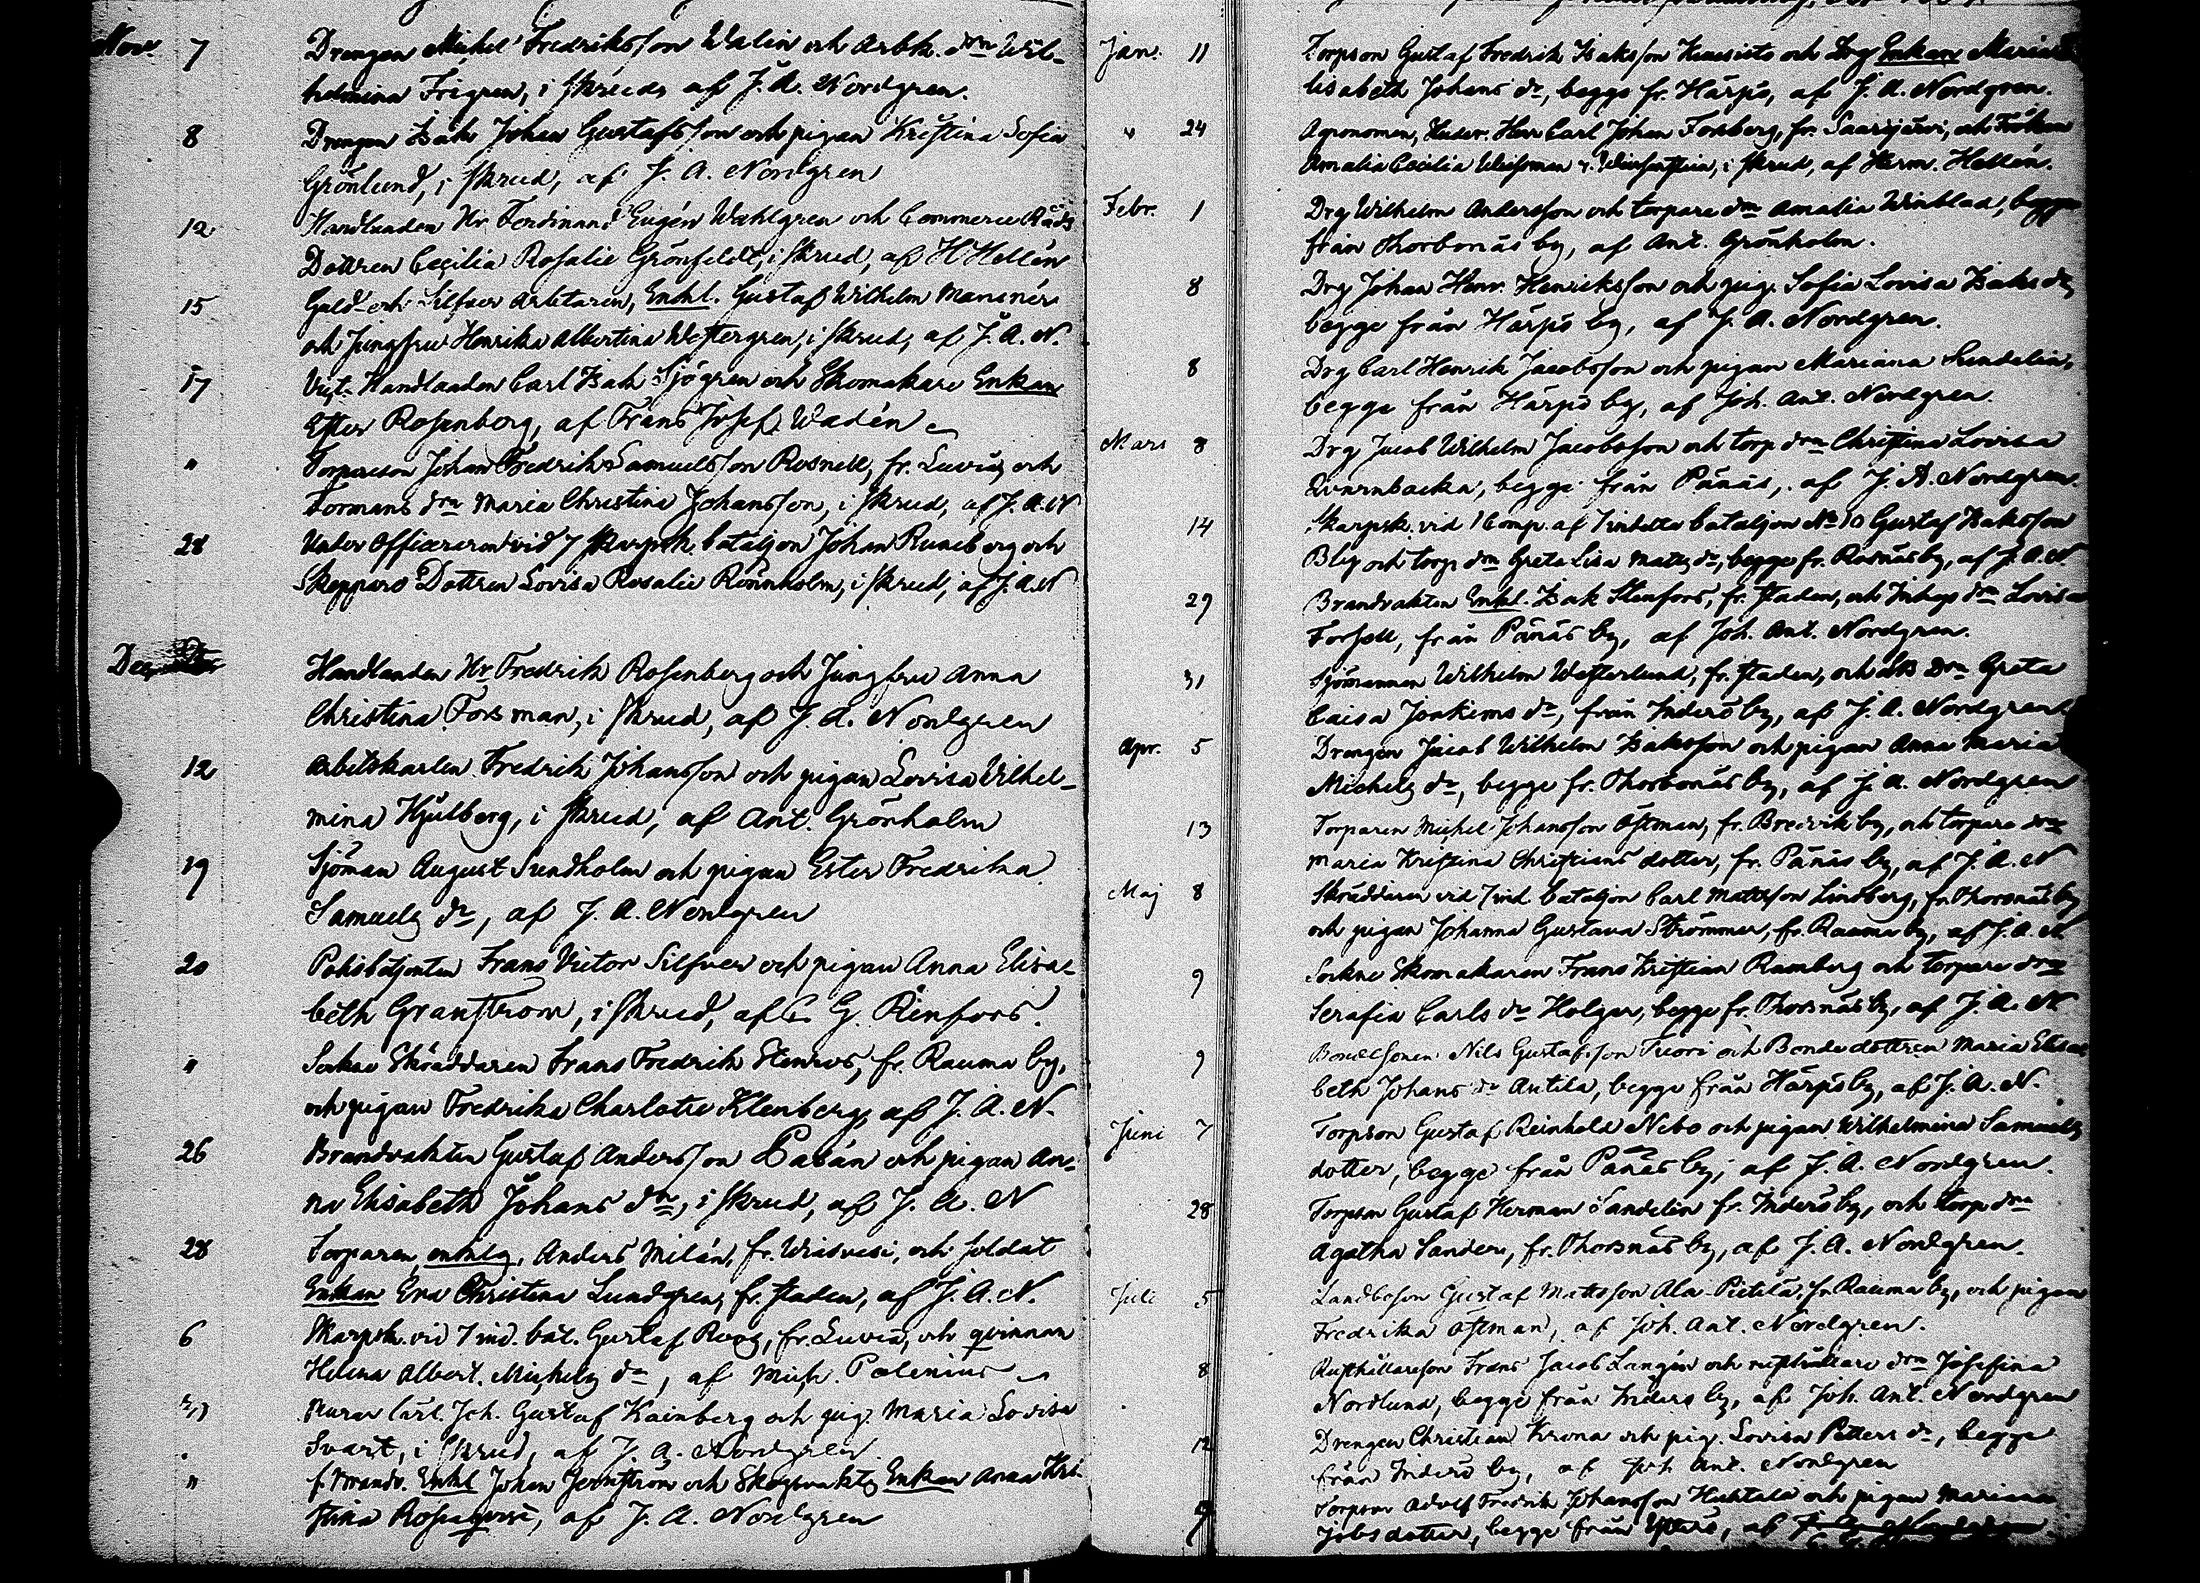 Nov. 7 Drengen Michel Fredriksson Walin och Arbk. drn Wil-
helmina Frigren, i skrud, af J. A. Nordgren.
8 Drengen Isak Johan Gustafsson och pigan Kristina Sofia
Grönlund, i skrud, af J. A. Nordgren
12 Handlanden Hr Ferdinand Eugén Wahlgren och Commerce Råds
Dottren Cecilia Rosalie Grönfeldt, i skrud, af H Hellén
15 Guld- och Silfver Arbetaren, Enkl. Gustaf Wilhelm
och Jungfru Henrika Albertina Westergren, i skrud, af J. A. N.
17 Handlanden Carl Isak Sjögren och Skomakare Enkan
Ester Rosenberg, af Frans Josef Wadén
" Torpareson Johan Fredrik Samuelsson Rosnell, fr. Luvia, och
Formans drn Maria Christina Johansson, i skrud, af J. A. N
28 Under Officeraren vid 7 skarpsk. bataljon Johan Runeberg och
Skeppars Dottren Lovisa Rosalie Rönnholm, i skrud, af J. A. N
Dec. Handlanden Hr Fredrik Rosenberg och Jungfru Anna
Christina Forsman, i skrud, af J. A. Nordgren
12 Arbetskarlen Fredrik Johansson och pigan Lovisa Wilhel-
mina Hjulberg, i skrud, af Ant. Grönholm
19 Sjöman August Sundholm och pigan Ester Fredrika
Samuels dr, af J. A. Nordgren
20 Frans Victor Silfver och pigan Anna Elisa-
beth Granström, i skrud, af C. G. Renfors.
" Sockne Skräddaren Frans Fredrik Stenroos, fr. Rauma by,
och pigan Fredrika Charlotte Klenberg, af J. A. N.
26 Brandvakten Gustaf Andersson och pigan An-
na Elisabeth Johans dr, i skrud, af J. A. N
28 Torparen, enklg. Anders Milén, fr. Wiasvesi, och soldat
Enkan Eva Christina Lundgren, fr. staden, af J. A. N.
6 Skarpsk. vid 7 ind. bat. Gustaf Roos, fr. Luvia, och qvinnan
Helena Albert. Michels dr, af Mich. Polenius
Murar lärl. Joh. Gustaf Kainberg och pig. Maria Lovisa
Svart, i skrud, af J. A. Nordgren
" f. Brandv. Enkl Johan och Skogvakts Enkan Anna Kri-
stina Rosenqvist, af J. A. Nordgren
Jan. 11 Torpson Gustaf Fredrik Isaksson och Drg Enkan Maria
Lisabeth Johans dr, begge fr. Härpö, af J. A. Nordgren.
" 24 Agronomen, Herr Carl Johan Forsberg, fr. Saarijärvi, och Fröken
Amalia Cecilia i skrud, af Herm. Hellén.
Febr. 1 Drg Wilhelm Andersson och torpare drn Amalia Winblad, begge
från Thorbonäs by, af Ant. Grönholm.
8 Drg Johan Henr. Henriksson och pig. Sofia Lovisa Isaks dr,
begge från Härpö by, af J. A. Nordgren.
8 Drg Carl Henrik Jacobsson och pigan Mariana Sundelin,
begge från Härpö by, af Joh. Ant. Nordgren
Mars 8 Drg Jacob Wilhelm Jacobsson och torp drn Christina Lovisa
Qvarnbacka, begge från Pånäs, af J. A. Nordgren.
14 Skarpsk. vid 1 Comp. af 7 indelta bataljon No 10 Gustaf Isaksson
Blij och torp drn Greta Lisa Matts dr, begge fr. Rosnäs by, af J. A. N.
29 Brandvakten Enkl. Isak Stenfors, fr. staden, och Inhys drn Lovisa
Forsell, från Pånäs by, af Joh. Ant. Nordgren.
31 Sjömannen Wilhelm Westerlund, fr. staden, och drn Greta
Caisa Joakims dr, från Inderö by, af J. A. Nordgren
Apr. 5 Drengen Jacob Wilhelm Isaksson och pigan Anna Maria
Michels dr, begge fr. Thorbonäs by, af J. A. Nordgren
13 Torparen Michel Johansson Östman, fr. Bredvik by, och torpare drn
Maria Kristina Christians dotter, fr. Pånäs by, af J. A. N
Maj 8 Skräddaren vid 7 ind bataljon Carl Mattsson Lindberg, fr. Thorsnäs by
och pigan Johanna Gustava Strömmer, fr. Rauma by, af J. A. N
9 Sockne Skomakaren Frans Kristian Ramberg och torpare drn
Serafia Carls dr Holger, begge fr. Thorsnäs by, af J. A. N
9 Bondesonen Nils Gustafsson Tuori och Bonde dottren Maria Elisa-
beth Johans dr Antila, begge från Härpö by, af J. A. N.
Juni 7 Torpson Gustaf Reinhold Nebo och pigan Wilhelmina Samuels
dotter, begge från Pånäs by, af J. A. Nordgren.
28 Torpson Gustaf Herman Sandelin fr. Inderö by, och torp drn
Agatha Sander, fr. Thorsnäs by, af J. A. Nordgren.
Juli 5 Landboson Gustaf Mattsson Ala-Pietilä, fr. Rauma by, och pigan
Fredrika Östman, af Joh. Ant. Nordgren.
8 Rusthållareson Frans Jacob Langén och rusthållare drn Josefina
Nordlund, begge från Inderö by, af Joh. Ant. Nordgren
12 Drengen Christian Krona och pig. Lovisa Petters dr, begge
från Inderö by, af Joh. Ant. Nordgren
Torpson Adolf Fredrik Johansson Huhtala och pigan Mariana
Jobs dotter, begge från Ytterö, af